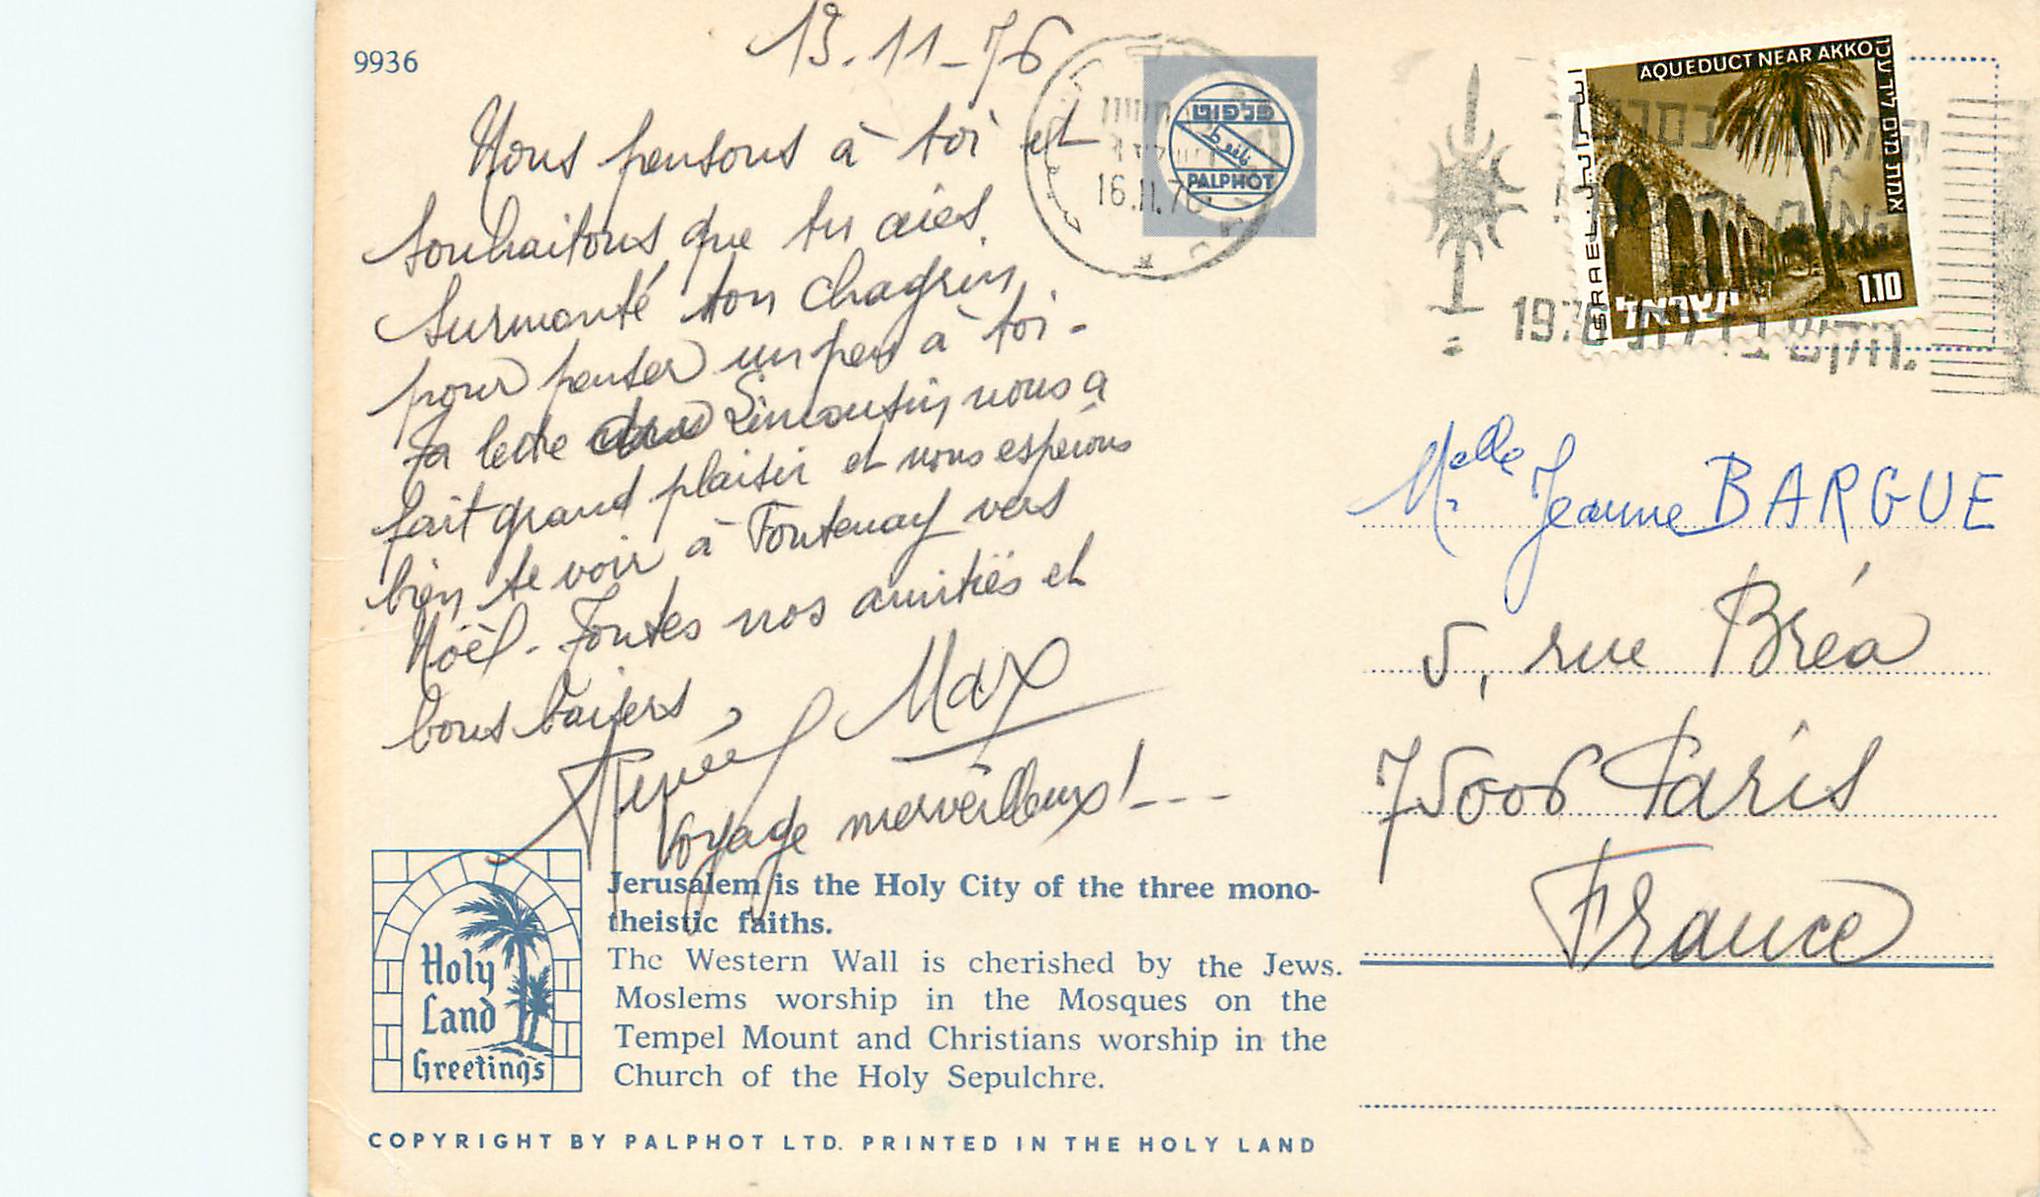 9936
13-11-76
Nous pensons à toi et
souhaitons que tu aies
surmonté ton chagrin
pour penser un peu à toi -
Ta lettre du Limousin nous a
fait grand plaisir et nous espérons
bien te voir à Fontenay vers
Nöel - Toutes nos amitiés et
bons baisers,
Renée Max
Voyage merveilleux! ---
Holy
Land
Greetings
Jerusalem is the Holy City of the three mono-
theistic faiths.
The Western Wall is cherished by the Jews.
Moslems worship in the Mosques on the
Tempel Mount and Christians worship in the
Church of the Holy Sepulchre.
COPYRIGHT BY PALPHOT LTD. PRINTED IN THE HOLY LAND
פלפוט
بالفوط
PALPHOT
16.11.76
AQUEDUCT NEAR AKKO
אמת מים ליד עכו
اسرائيل
ISRAEL
ישראל
1.10
Melle Jeanne BARGUE
5, rue Bréa
75006 Paris
France